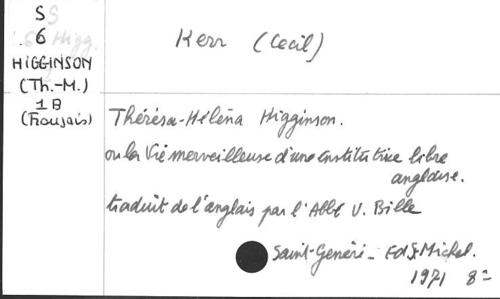 S
6
HIGGINSON
(Th.-M.)
1B
(Français)
Kerr (Cecil)
Thérésa-Héléna Higginson.
ou la Vie merveilleuse d'une institutrice libre
anglaise.
traduit de l'anglais par l'Abbé V. Bille
Saint-Généri - Ed St Michel.
1971 8º